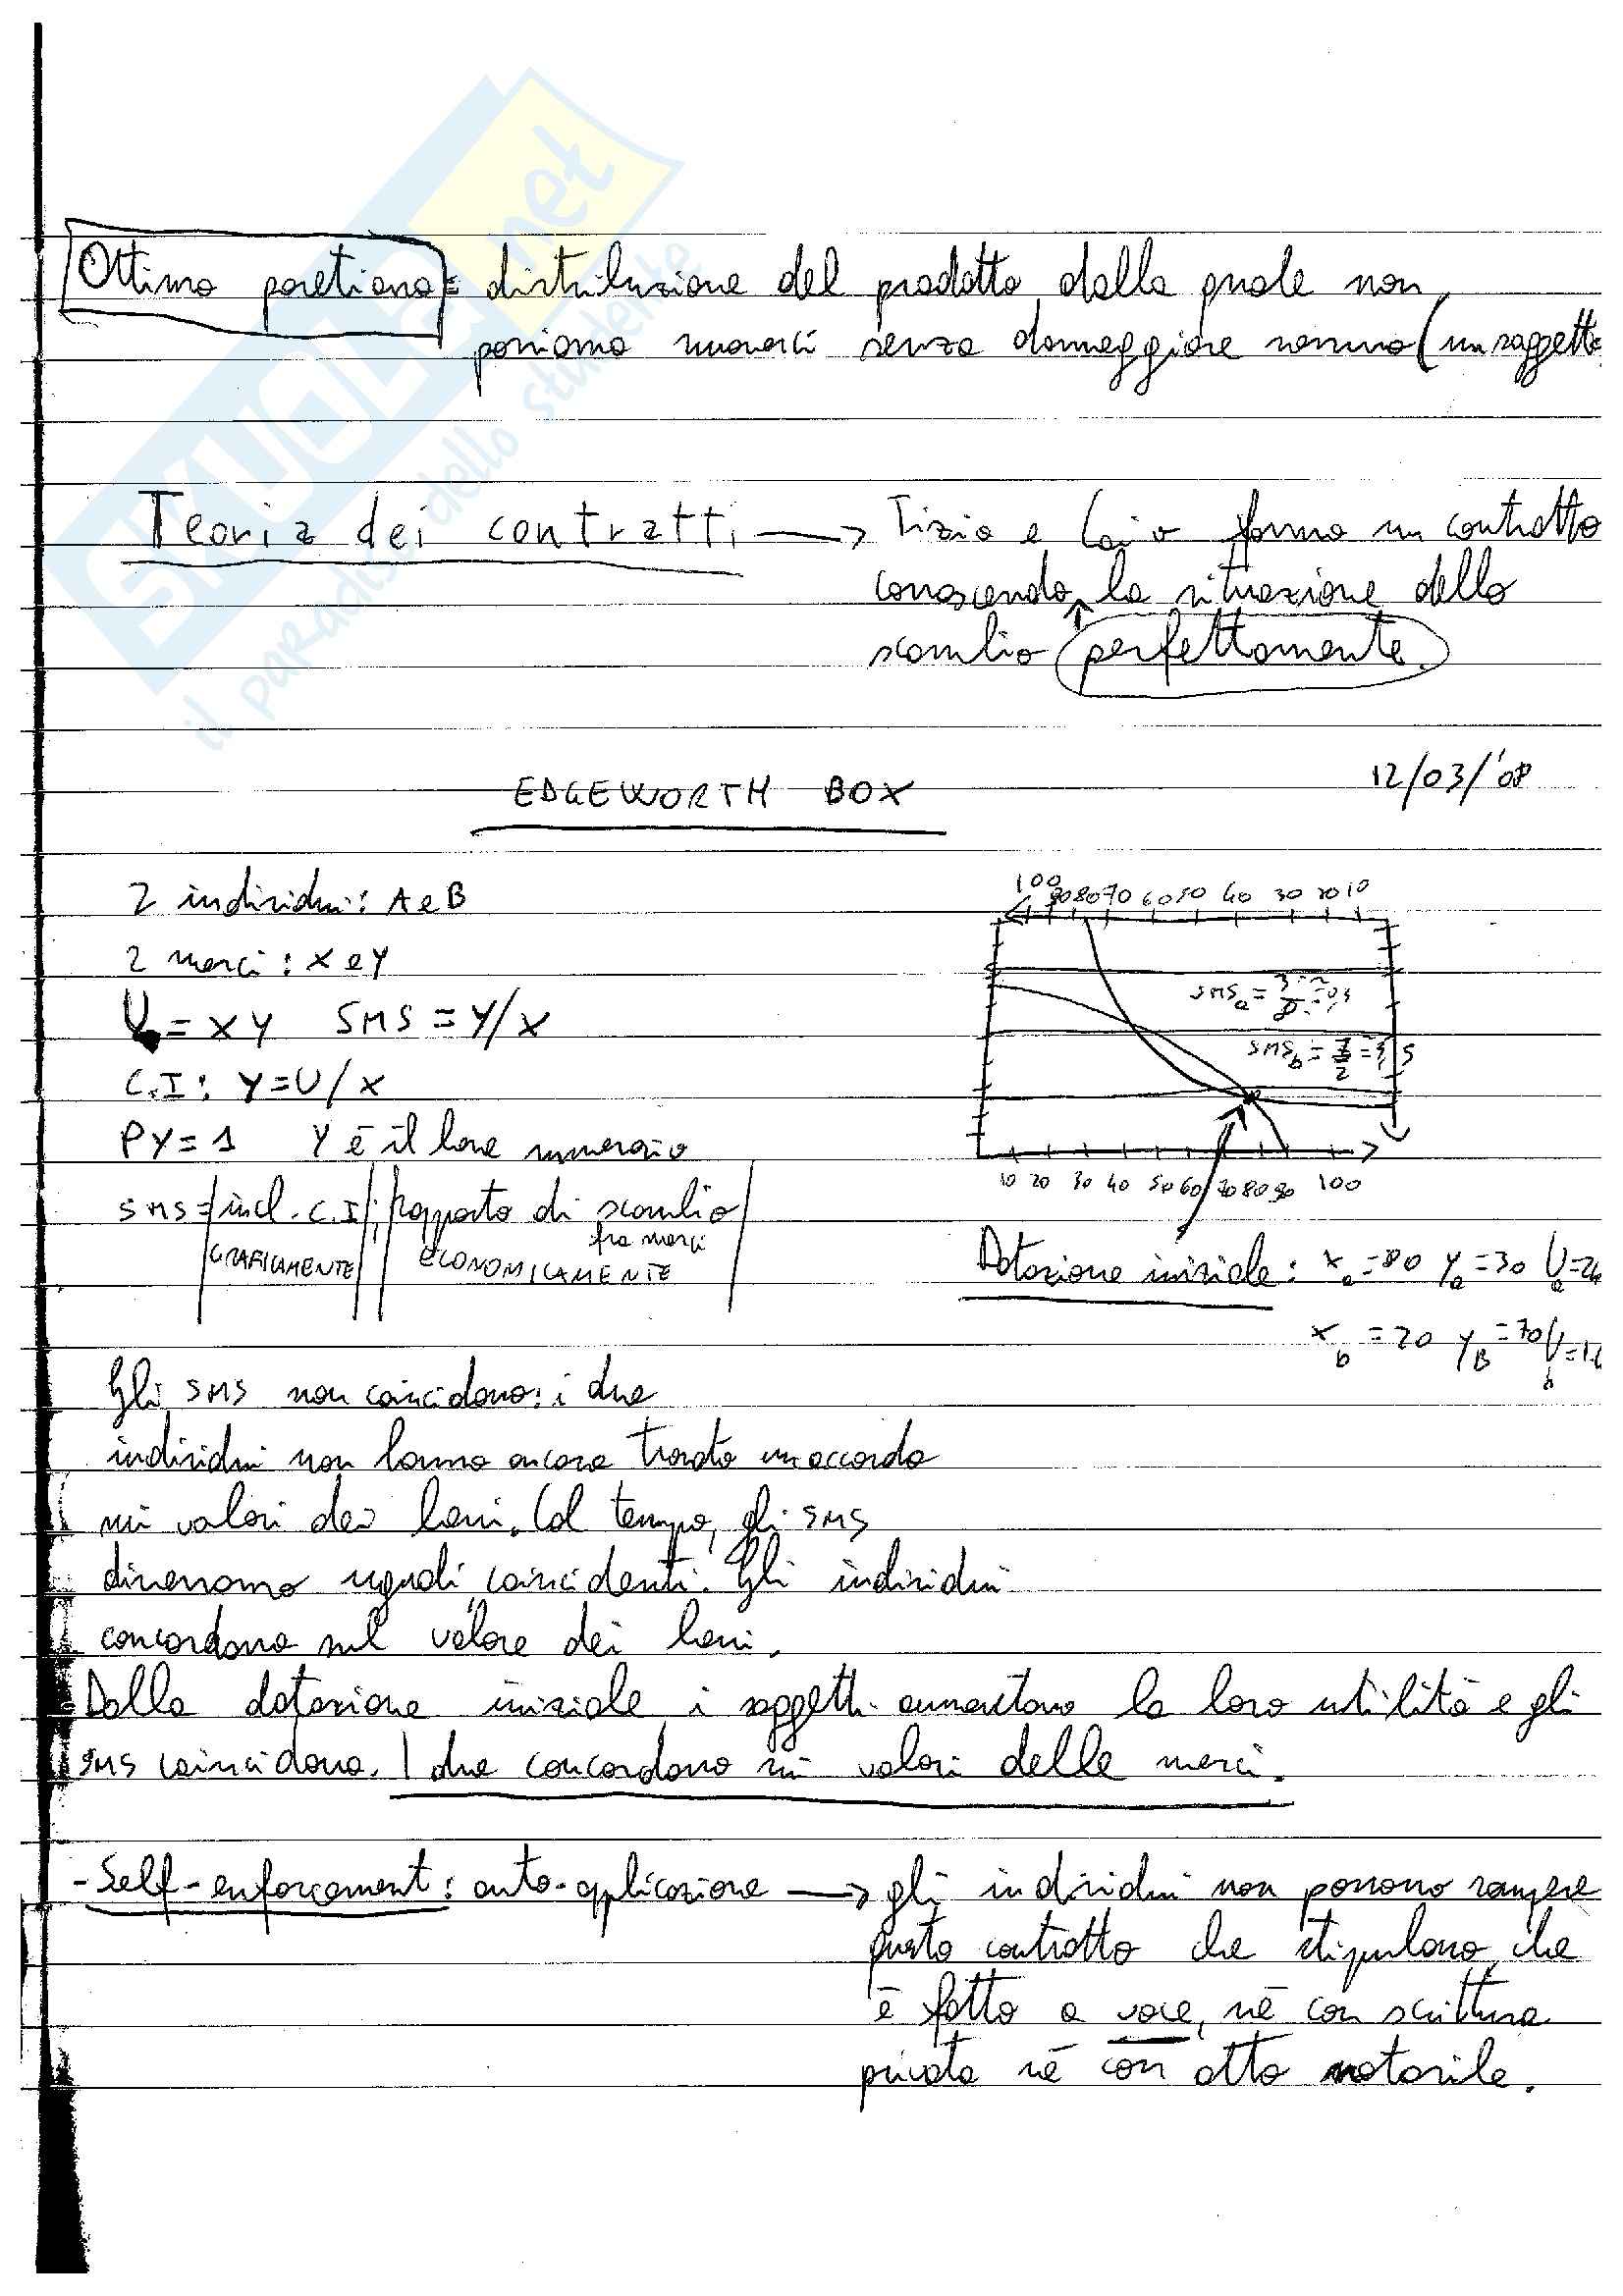 SKUOLA.net
il paradiso dello studente
Ottimo paretiano = distribuzione del prodotto dalla quale non
possiamo muoverci senza danneggiare nessuno (un soggetto
Teoria dei contratti → Tizio e Caio fanno un contratto
conoscendo la situazione dello
scambio perfettamente.
EDGEWORTH BOX
12/03/'08
2 individui: A e B
2 merci: X e Y
U = XY SMS = Y/X
C.I: Y=U/X
PY=1 Y è il bene numerario
SMS = incl. C.I; Rapporto di scambio
fra merci
GRAFICAMENTE ECONOMICAMENTE
100 90 80 70 60 50 40 30 20 10
SMSa =
SMSb =
10 20 30 40 50 60 70 80 90 100
Dotazione iniziale: xa=80 ya=30 Ua=24
xb=20 yB=70 Ub=14
Gli SMS non coincidono: i due
individui non hanno ancora trovato un accordo
sui valori dei beni. Col tempo, gli SMS
divengono uguali, coincidenti. Gli individui
concordano sul valore dei beni.
Dalla dotazione iniziale i soggetti aumentano la loro utilità e gli
SMS coincidono. I due concordano sui valori delle merci.
- Self-enforcement: auto-applicazione → gli individui non possono rompere
questo contratto che stipulano, che
è fatto a voce, nè con scrittura
privata nè con atto notarile.